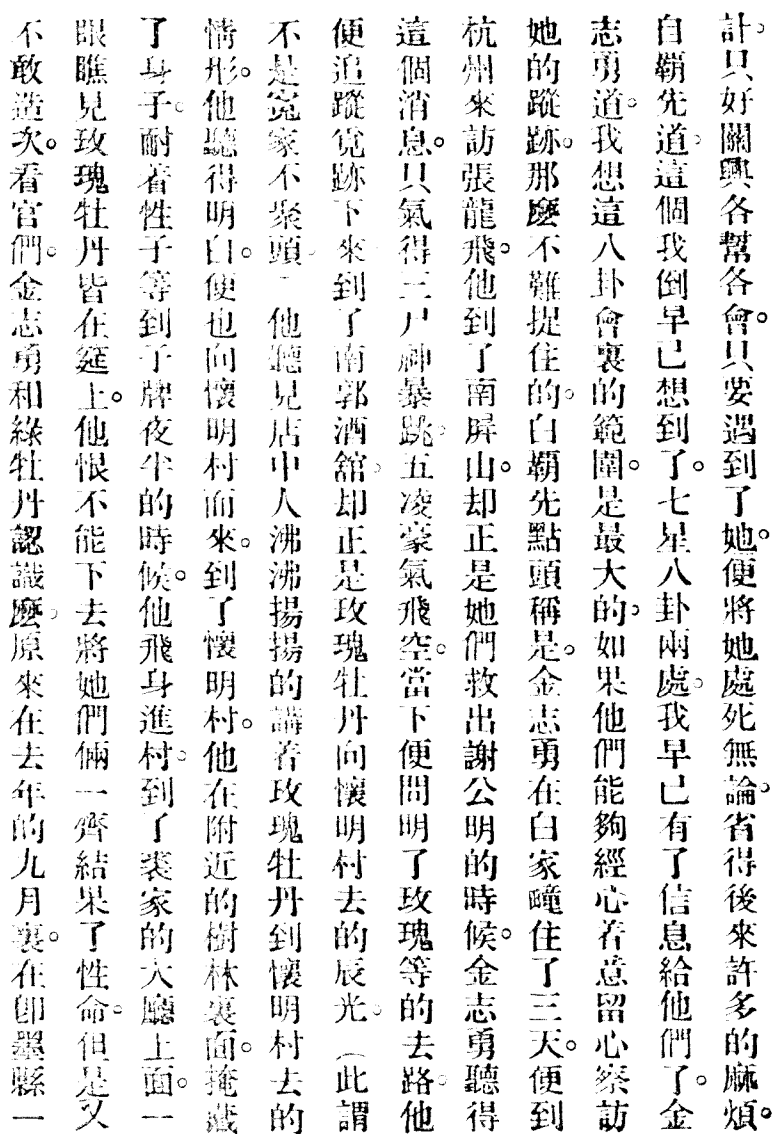 計。只好關興各幫各會。只要遇到了她。便將她處死無論。省得後來許多的麻煩。
白霸先道。這個我倒早已想到了。七星八卦兩處。我早已有了信息給他們了。金
志勇道。我想這八卦會裏的範圍。是最大的。如果他們能夠經心着意留心察訪
她的蹤跡。那麼不難捉住的。白霸先點頭稱是。金志勇在白家疃住了三天。便到
杭州來訪張龍飛。他到了南屏山。却正是她們救出謝公明的時候。金志勇聽得
這個消息。只氣得三尸神暴跳。五凌豪氣飛空。當下便問明了玫瑰等的去路。他
便追蹤覓跡下來。到了南郭酒舘。却正是玫瑰牡丹向懷明村去的辰光。（此謂
不是寃家不聚頭）他聽見店中人沸沸揚揚的講着玫瑰牡丹到懷明村去的
情形。他聽得明白。便也向懷明村而來。到了懷明村。他在附近的樹林裏面。掩藏
了身子。耐着性子等到子牌夜半的時候。他飛身進村。到了裘家的大廳上面。一
眼瞧見玫瑰牡丹皆在筵上。他恨不能下去將她們倆一齊結果了性命。但是又
不敢造次。看官們。金志勇和綠牡丹認識麼。原來在去年的九月裏。在卽墨縣一